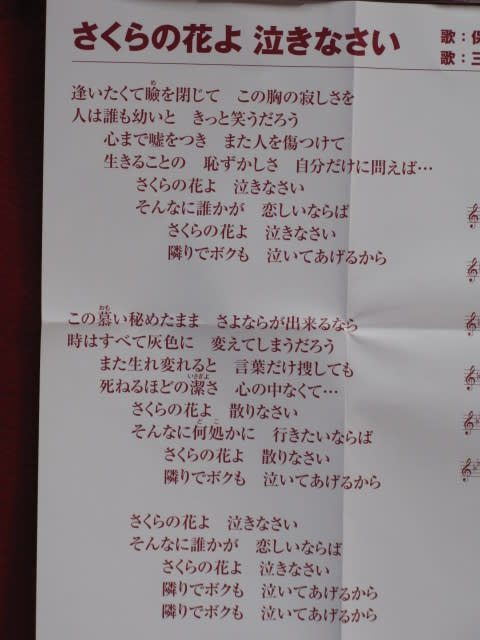 さくらの花よ 泣きなさい
歌：保
歌：三
逢いたくて瞼を閉じて　この胸の寂しさを
人は誰も幼いと　きっと笑うだろう
心まで嘘をつき　また人を傷つけて
生きることの　恥ずかしさ　自分だけに問えば…
さくらの花よ　泣きなさい
そんなに誰かが　恋しいならば
さくらの花よ　泣きなさい
隣りでボクも　泣いてあげるから
この慕い秘めたまま　さよならが出来るなら
時はすべて灰色に　変えてしまうだろう
また生れ変れると　言葉だけ捜しても
死ねるほどの潔さ　心の中なくて…
さくらの花よ　散りなさい
そんなに何処かに　行きたいならば
さくらの花よ　散りなさい
隣りでボクも　泣いてあげるから
さくらの花よ　泣きなさい
そんなに誰かが　恋しいならば
さくらの花よ　泣きなさい
隣りでボクも　泣いてあげるから
隣りでボクも　泣いてあげるから